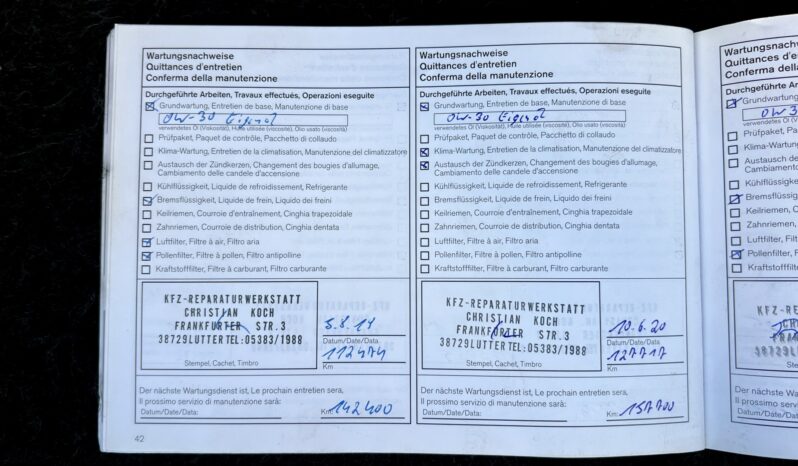 Wartungsnachweise
Quittances d'entretien
Conferma della manutenzione
Durchgeführte Arbeiten, Travaux effectués, Operazioni eseguite
Grundwartung, Entretien de base, Manutenzione di base
OW-30
verwendetes Öl (Viskosität), Huile utilisée (viscosité), Olio usato (viscosità)
Prüfpaket, Paquet de contrôle, Pacchetto di collaudo
Klima-Wartung, Entretien de la climatisation, Manutenzione del climatizzatore
Austausch der Zündkerzen, Changement des bougies d'allumage,
Cambiamento delle candele d'accensione
Kühlflüssigkeit, Liquide de refroidissement, Refrigerante
Bremsflüssigkeit, Liquide de frein, Liquido dei freini
Keilriemen, Courroie d'entraînement, Cinghia trapezoidale
Zahnriemen, Courroie de distribution, Cinghia dentata
Luftfilter, Filtre à air, Filtro aria
Pollenfilter, Filtre à pollen, Filtro antipolline
Kraftstofffilter, Filtre à carburant, Filtro carburante
KFZ-REPARATURWERKSTATT
CHRISTIAN KOCH
FRANKFURTER STR.3
38729LUTTER TEL:05383/1988
Datum/Date/Data
Km
Stempel, Cachet, Timbro
Der nächste Wartungsdienst ist, Le prochain entretien sera,
Il prossimo servizio di manutenzione sarà:
Datum/Date/Data:
Km: 142400
42
Wartungsnachweise
Quittances d'entretien
Conferma della manutenzione
Durchgeführte Arbeiten, Travaux effectués, Operazioni eseguite
Grundwartung, Entretien de base, Manutenzione di base
OW-30
verwendetes Öl (Viskosität), Huile utilisée (viscosité), Olio usato (viscosità)
Prüfpaket, Paquet de contrôle, Pacchetto di collaudo
Klima-Wartung, Entretien de la climatisation, Manutenzione del climatizzatore
Austausch der Zündkerzen, Changement des bougies d'allumage,
Cambiamento delle candele d'accensione
Kühlflüssigkeit, Liquide de refroidissement, Refrigerante
Bremsflüssigkeit, Liquide de frein, Liquido dei freini
Keilriemen, Courroie d'entraînement, Cinghia trapezoidale
Zahnriemen, Courroie de distribution, Cinghia dentata
Luftfilter, Filtre à air, Filtro aria
Pollenfilter, Filtre à pollen, Filtro antipolline
Kraftstofffilter, Filtre à carburant, Filtro carburante
KFZ-REPARATURWERKSTATT
CHRISTIAN KOCH
FRANKFURTER STR.3
38729LUTTER TEL:05383/1988
10.6.20
Datum/Date/Data
127717
Km
Stempel, Cachet, Timbro
Der nächste Wartungsdienst ist, Le prochain entretien sera,
Il prossimo servizio di manutenzione sarà:
Datum/Date/Data:
Km: 157700
Quittances d'e
Conferma dell
Durchgeführte Ar
Grundwartung
OW3
verwendetes Öl
Prüfpaket, Pa
Klima-Wartun
Austausch de
Cambiamento
Kühlflüssigkei
Bremsflüssig
Keilriemen, C
Zahnriemen,
Luftfilter, Filt
Pollenfilter, F
Kraftstofffilte
KFZ-RE
Ste
Der nächste War
Il prossimo servi
Datum/Date/Data: